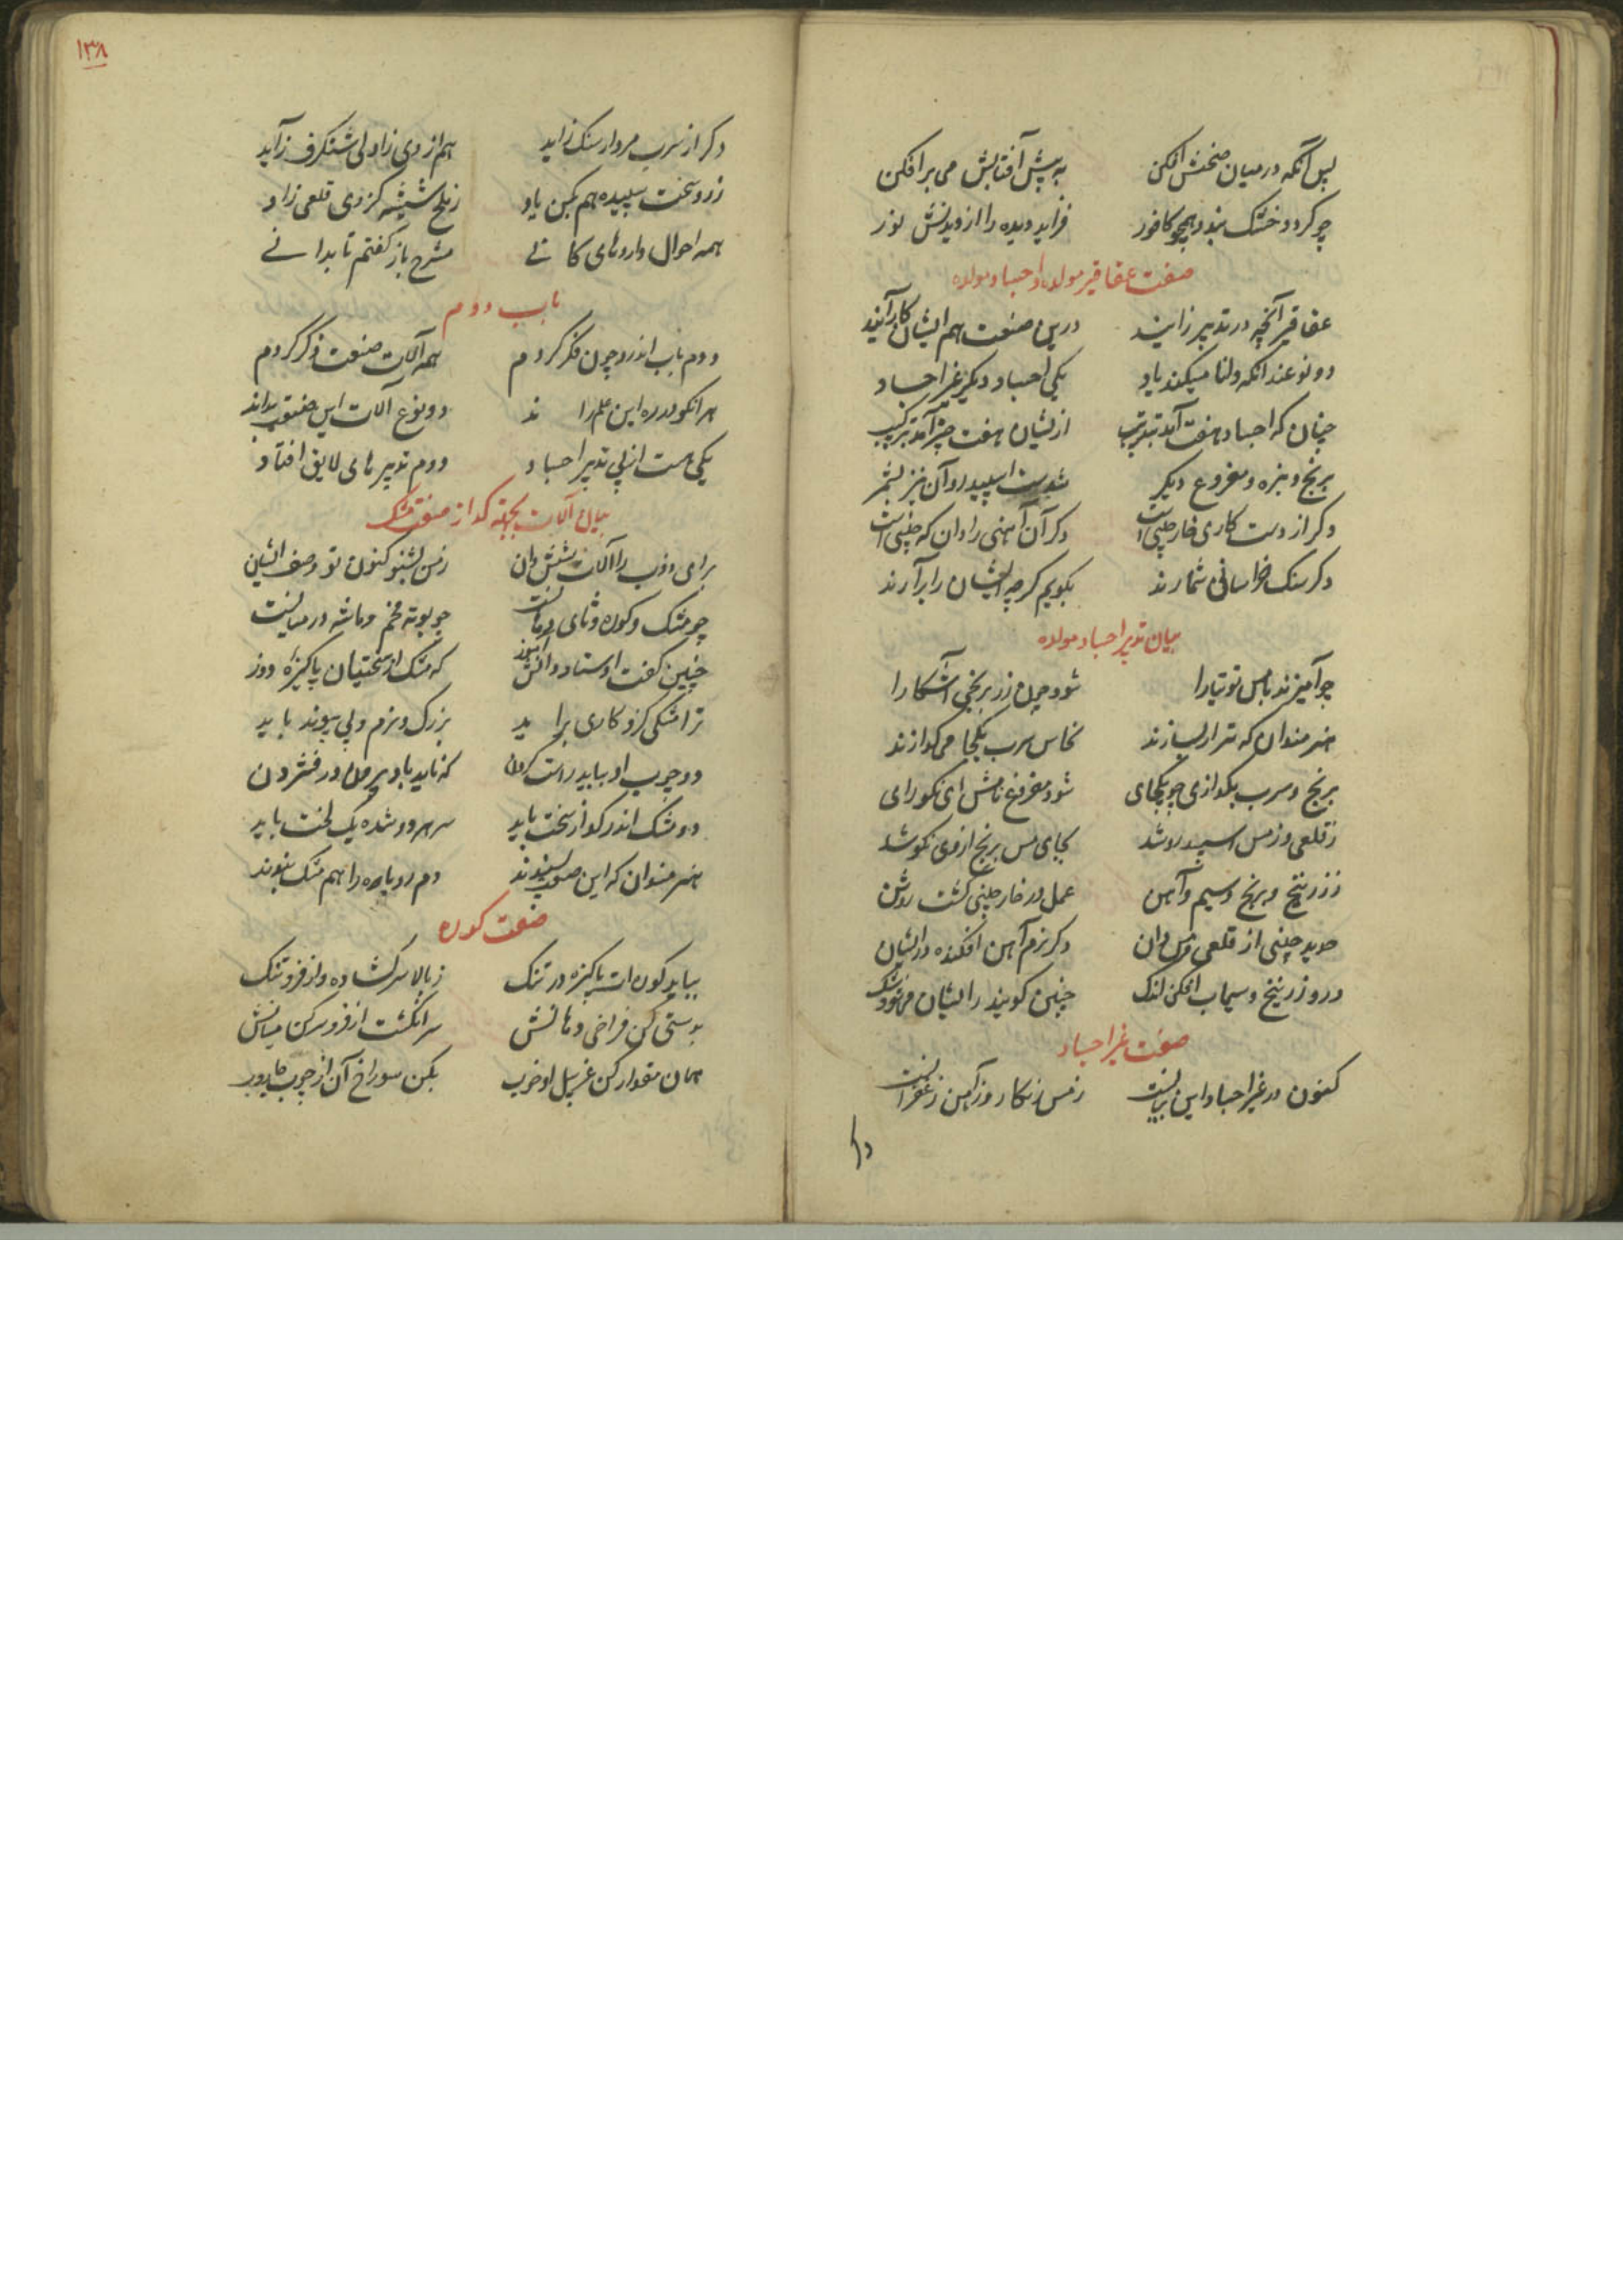 پس آنگه در میان صحنش افکن به پیش آفتابش می برافکن
چو کردد خشک بود همچو کافور فزاید دیده را از دیدنش نور
صفت عقاقیر مولده و اجساد مولده
عقاقیر آنچه در تدبیر زایند درین صنعت هم ایشان کار آیند
دو نوعند آنکه دلنا میکند یاد یکی اجساد دیکر غیر اجساد
چنان که اجساد هفت آمد بترتیب ازیشان هفت چیز آمد بترکیب
برنج و مفروغ دیکر شدست اسپیدرو آن نیز بشمر
دکر از دست کاری خارچینی است دکر آن آهنی را دان که چینی است
دکر سنک خراسانی شمارند بکویم کرچه ایشان را برآرند
بیان تدبیر اجساد مولده
چو آمیزند با مس توتیا را شود چون زر برنجی آشکارا
هنرمندان که تدبیر سازند نحاس سرب یکجا می کدازند
برنج و سرب بکدازی چو یکجای شود مفروغ نامش ای نکورای
ز قلعی وز مس اسپیدرو شد بجای مس برنج ازوی نکو شد
ز زرنیخ و برنج و سیم و آهن عمل در خارچینی کشت روشن
حدید چینی از قلعی و مس دان دکر نرم آهن افکنده در ایشان
درو زرنیخ و سیماب افکن اندک چنین کویند ایشان
صفت غیر اجساد
کنون در غیر اجساد این بیانست ز مس زنکار وز آهن زعفرانست
دکر
١٣٨
دکر از سرب مردارسنک زاید هم از وی زاولی شنکرف زاید
ز روسخت سپیده هم بکن یاد شیشه کز وی قلعی زاد
همه احوال داروهای کانی مشرح باز کفتم تا بدانی
باب دوم
دوم باب اندرو چون فکر کردم همه آلات صنعت ذکر کردم
هر انکو در ره این علم راند دو نوع آلات این صنعت بداند
یکی هست از پی تدبیر اجساد دوم تدبیرهای لایق افتاد
بیان آلات بجهة کداز صفت مشک
برای ذوب را آلات شش دان ز من بشنو کنون تو وصف ایشان
چو مشک و کوره و نای چو بوته مخم و ماشه در میانست
چنین کفت اوستاد دانش آموز که مشک از سختیان پاکیزه دوز
ترا مشکی کزو کاری براید بزرک و نرم و پی پیوند باید
دو چوب او بباید راست کردن که ناید باد بیرون در فشردن
دو مشک اندر کداز سخت باید سر هر دو شده یک لخت باید
هنرمندان که این صنعت پسندند دم روباره را هم مشک بندند
صفت کوره
بباید کوره ات پاکیزه در تنک ز بالا سر کشاده وز فرو تنک
بدستی کن فراخی دهانش سر انکشت از فرو سر کن میانش
همان مقدار کن او خوب بکن سوراخ آن از چوب